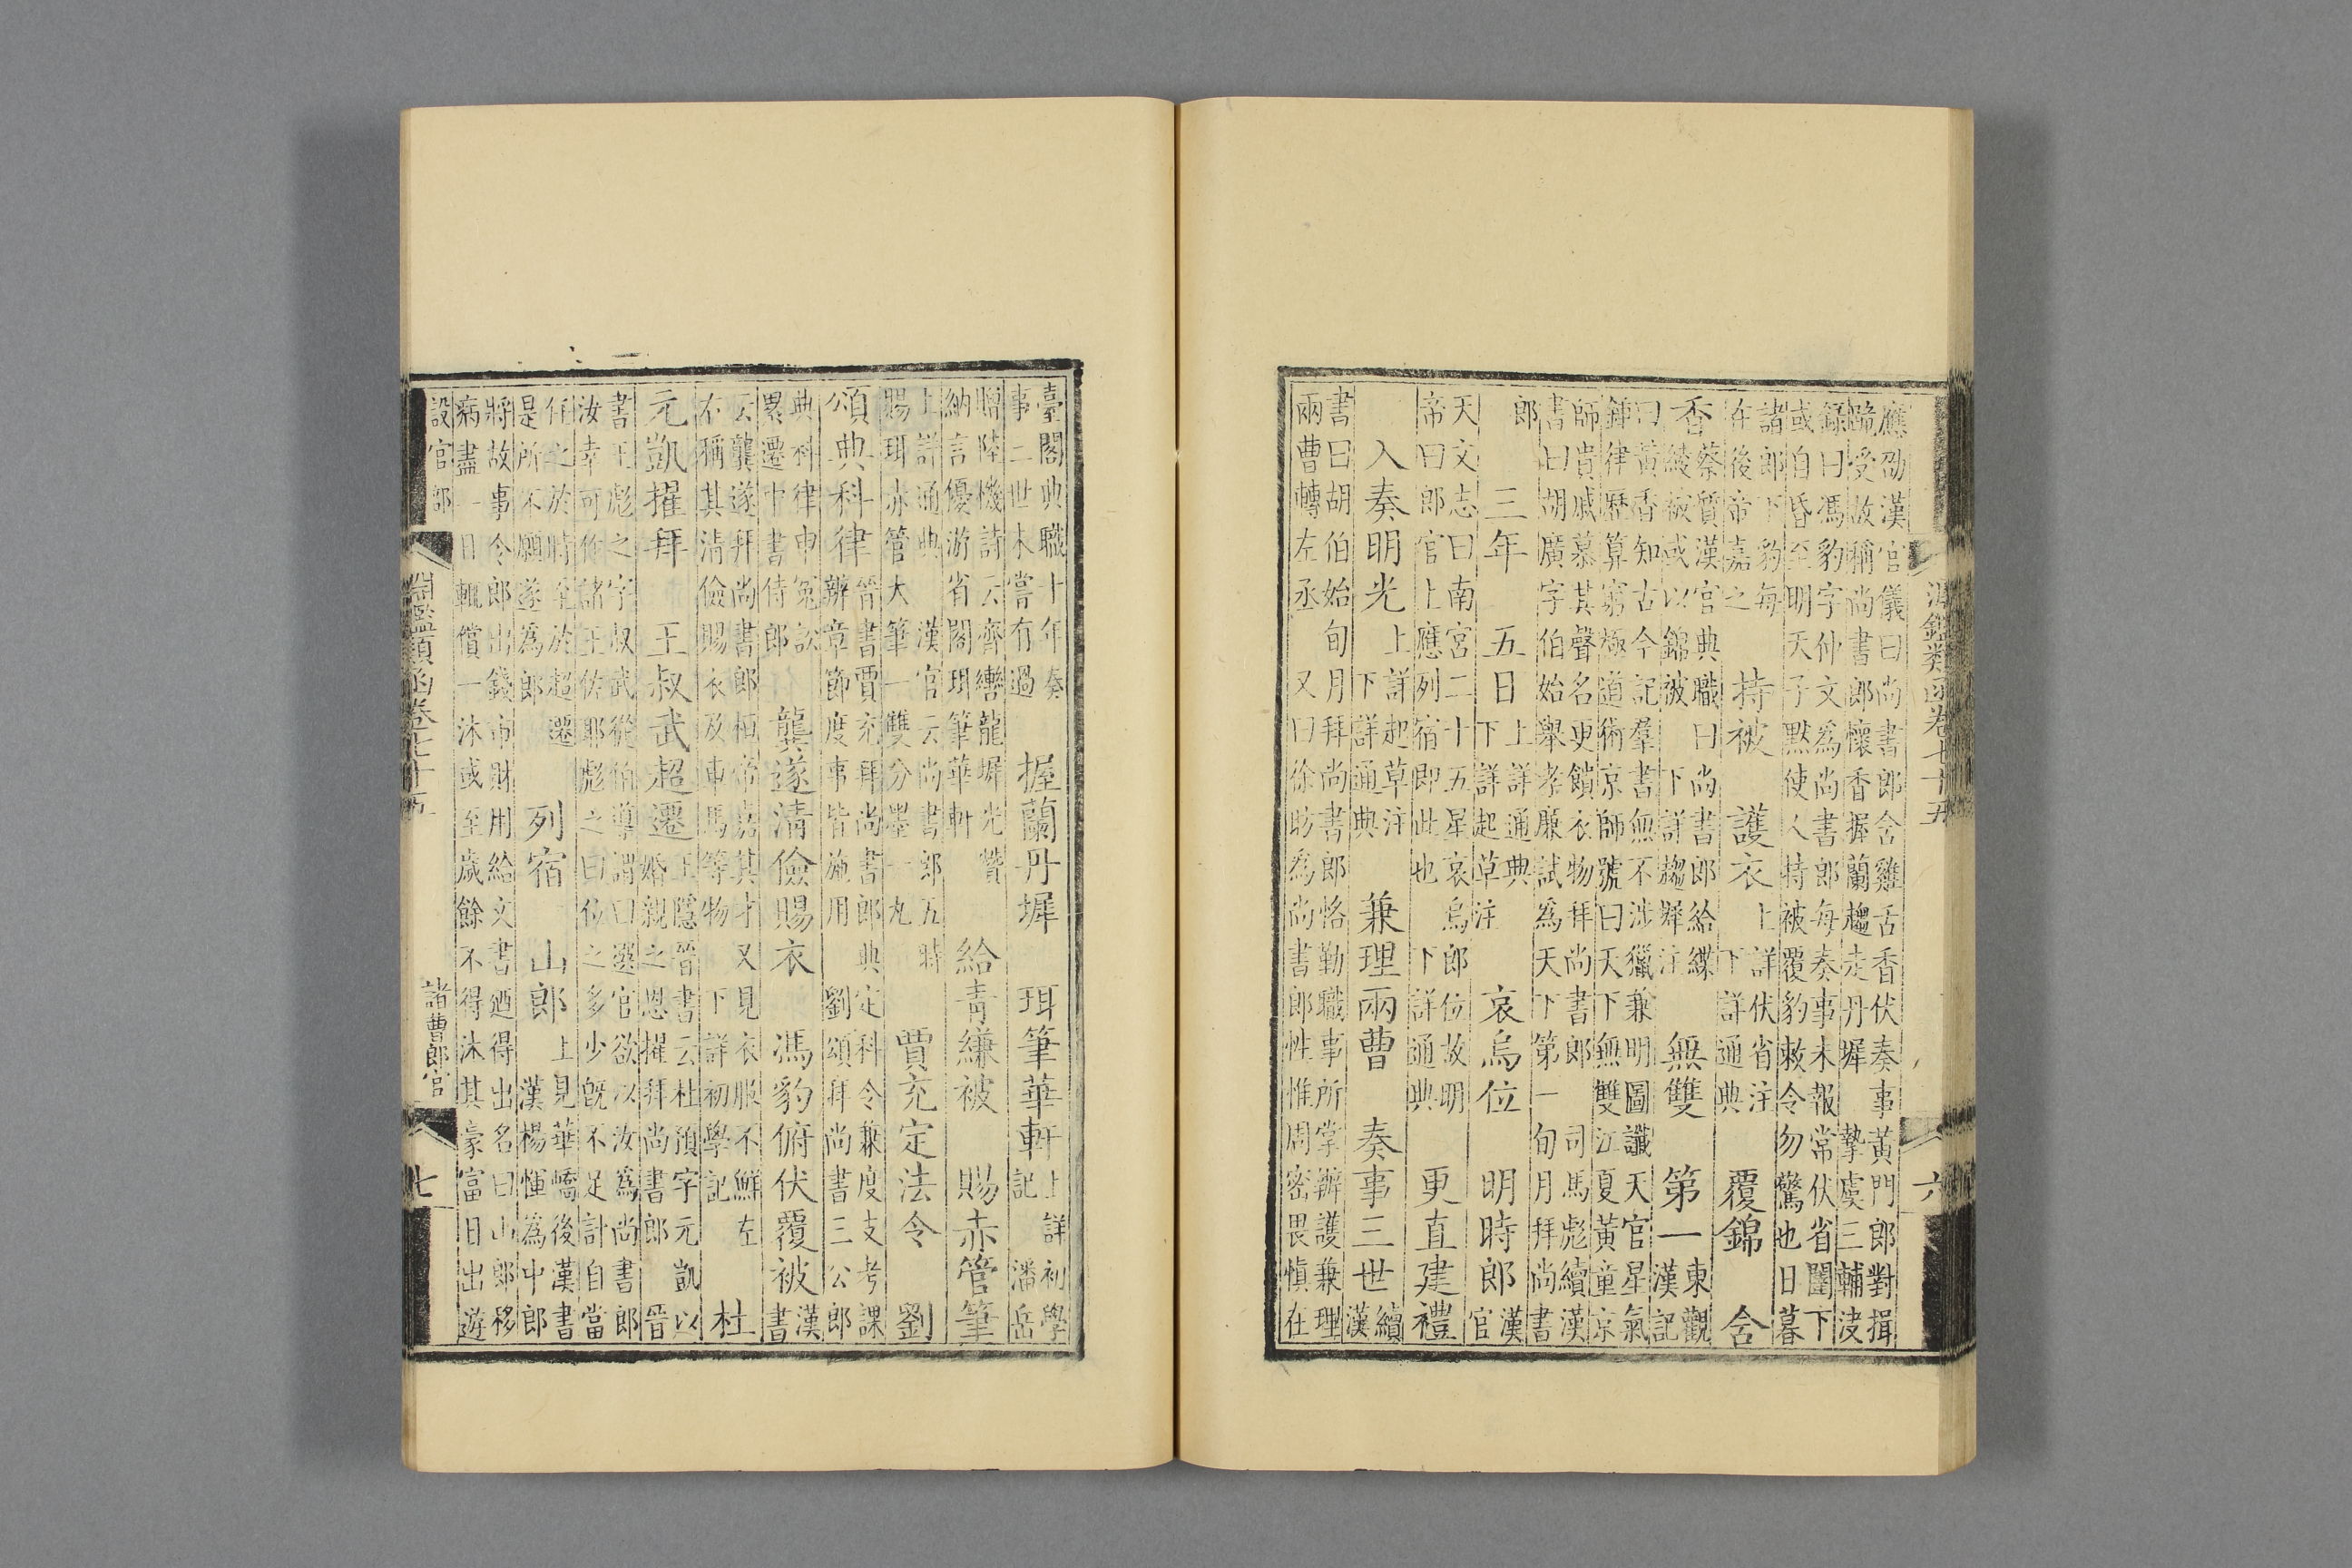 淵鑑類函卷七十五 六
應劭漢官儀曰尚書郎含雞舌香伏奏事黃門郎對揖
跪受故稱尚書郎懷香握蘭趨走丹墀 摯虞三輔決
錄曰馮豹字仲文為尚書郎每奏事未報常伏省閣下
或自昏至明天子默使人持被覆豹敕令勿驚也日暮
諸郎下豹每
在後帝嘉之 持被 護衣 上詳伏省注 下詳通典 覆錦 含
香 蔡質漢官典職曰尚書郎給緤
綾被或以錦被 下詳趨墀注 無雙 第一 東觀漢記
曰黃香知古今記羣書無不涉獵兼明圖讖天官星氣
鍾律歷算窮極道術京師號曰天下無雙江夏黃童京
師貴戚慕其聲名更饋衣物拜尚書郎 司馬彪續漢
書曰胡廣字伯始舉孝廉試為天下第一旬月拜尚書
郎 三年 五日 上詳通典 下詳起草注 哀烏位 明時郎 漢官
天文志曰南宮二十五星哀烏郎位故明
帝曰郎官上應列宿即此也 下詳通典 更直建禮
入奏明光 上詳起草注 下詳通典 兼理兩曹 奏事三世 續漢
書曰胡伯始旬月拜尚書郎恪勤職事所掌辦護兼理
兩曹轉左丞 又曰徐昉為尚書郎性惟周密畏慎在
臺閣典職十年奏
事二世未嘗有過 握蘭丹墀 珥筆華軒 上詳初學記 潘岳
贈陸機詩云齊轡龍墀光贊
納言優游省閣珥筆華軒 給青縑被 賜赤管筆
上詳通典 漢官云尚書郎五時
賜珥赤管大筆一雙分墨一丸 賈充定法令 劉
頌典科律 晉書賈充拜尚書郎典定科令兼度支考課
辯章節度事皆施用 劉頌拜尚書三公郎
典科律申冤訟
累遷中書侍郎 龔遂清儉賜衣 馮豹俯伏覆被 漢書
云龔遂拜尚書郎桓帝嘉其才又見衣服不鮮左
右稱其清儉賜衣及車馬等物 下詳初學記 杜
元凱擢拜 王叔武超遷 王隱晉書云杜預字元凱以
婚親之恩擢拜尚書郎 晉
書王彪之字叔武從伯導謂曰選官欲以汝為尚書郎
汝幸可作諸王佐耶彪之曰位之多少既不足計自當
任之於時至於超遷
是所不願遂為郎 列宿 山郎 上見華嶠後漢書
漢楊惲為中郎
將故事令郎出錢市財用給文書廼得出名曰山郎移
病盡一日輒償一沐或至歲餘不得沐其豪富日出遊
設官部
淵鑑類函卷七十五 諸曹郎官 七